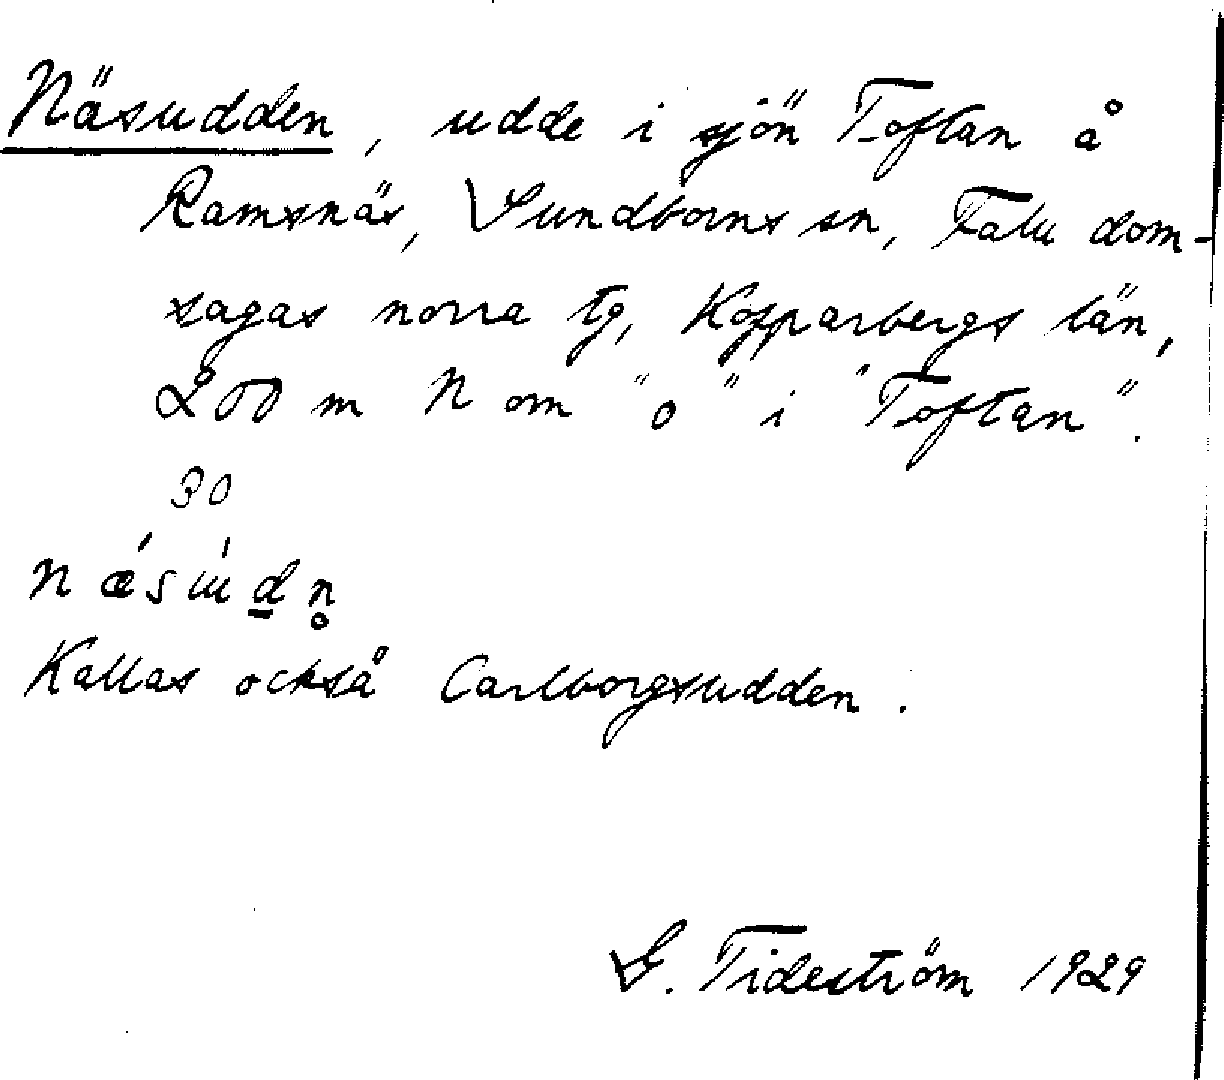 Näsudden, udde i sjön Toftan å
Ramsnäs, Sundborns sn, Falu dom-
sagas norra tg, Kopparbergs län,
200 m N om "o" i "Toftan".
30
Kallas också Carlborgsudden.
G. Tideström 1929